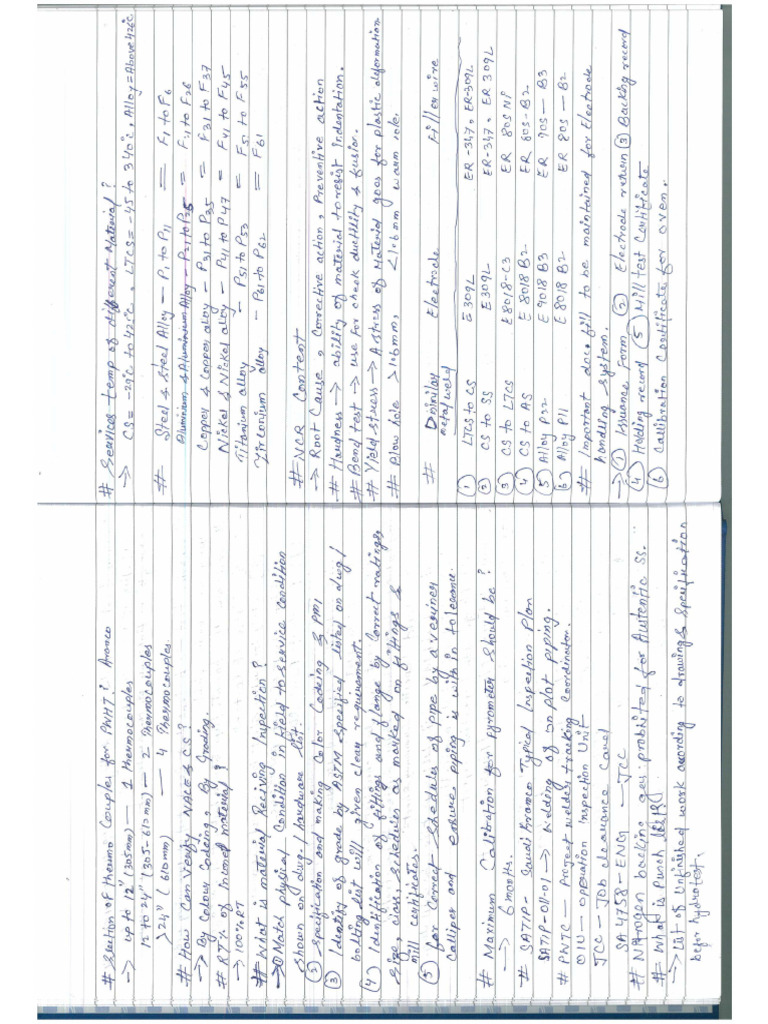 # Section of thermo Couples for PWHT? Aramco
→ up to 12" (305mm) — 1 Thermocouples
12 to 24" (305-610mm) — 2 Thermocouples
>24" (610mm) — 4 Thermocouples.
# How Can verify NACE & CS?
→ By Colour Codeing, By Grading.
# RT% of inconel material?
→ 100% RT
# What is material Reciving Inspection?
→① Match physical Condition in field to service condition
shown on dwg. / hardware list.
② Specification and making Color Codeing & PMI
③ Identity of grade by ASTM specified listed on dwg/
bolting list will given clean requirement.
④ Identification of fittings and flange by correct ratings
Size, class, schedules as marked on fittings &
mill certificates.
⑤ for Correct schedules of pipe by a verniner
calliper and ensure piping is with in tolerance.
# Maximum Calibration for Pyrometer should be?
→ 6 months.
# SATIP- Saudi Aramco Typical Inspection Plan
SATIP-011-01 → Welding of on plot piping.
# PWTC — project welder tracking Coordinator.
OIU — operation inspection Unit
JCC — Job clearance Card
SA 4758-ENG — JCC
# Nitrogen backing gas prohibited for Austentic SS.
# What is Punch list?
→ List of Unfinished work according to drawing & Specification
befor hydrotest.
# Services temp of different Material?
→ CS = -29°c to 425°c, LTCS = -45 to 340°c, Alloy = Above 426°c
# Steel & Steel Alloy — P1 to P11 = F1 to F6
Aluminium & Aluminium Alloy — P21 to P25 = F21 to F26
Copper & Copper alloy — P31 to P35 = F31 to F37
Nickel & Nickel alloy — P41 to P47 = F41 to F45
Titanium alloy — P51 to P53 = F51 to F55
Zirconium alloy — P61 to P62 = F61
# NCR Content
→ Root Cause, Corrective action, Preventive action
# Hardness → ability of material to resist Indentation.
# Bend test → use for cheek ductility & fusion.
# Yield stress → A stress of Material goes for plastic deformation
# Blow hole >1.6mm, <1.6mm warm hole.
# Dsimilar metal weld Electrode Filler wire
① LTCS to CS E309L ER-347, ER-309L
② CS to SS E309L ER-347, ER 309L
③ CS to LTCS E8018-C3 ER 80S Ni
④ CS to AS E8018 B2 ER 80S-B2
⑤ Alloy P22 E9018 B3 ER 90S — B3
⑥ Alloy P11 E8018 B2 ER 80S — B2
# Important doc. fill to be maintained for Electrode
handling system.
→① Issuance Form ② Electrode return ③ Backing record
④ Holding record ⑤ Mill test Certificate
⑥ Callibration Certificate for oven.